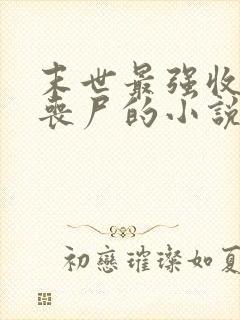 末世最强收
喪尸的小說
初戀璀璨如夏